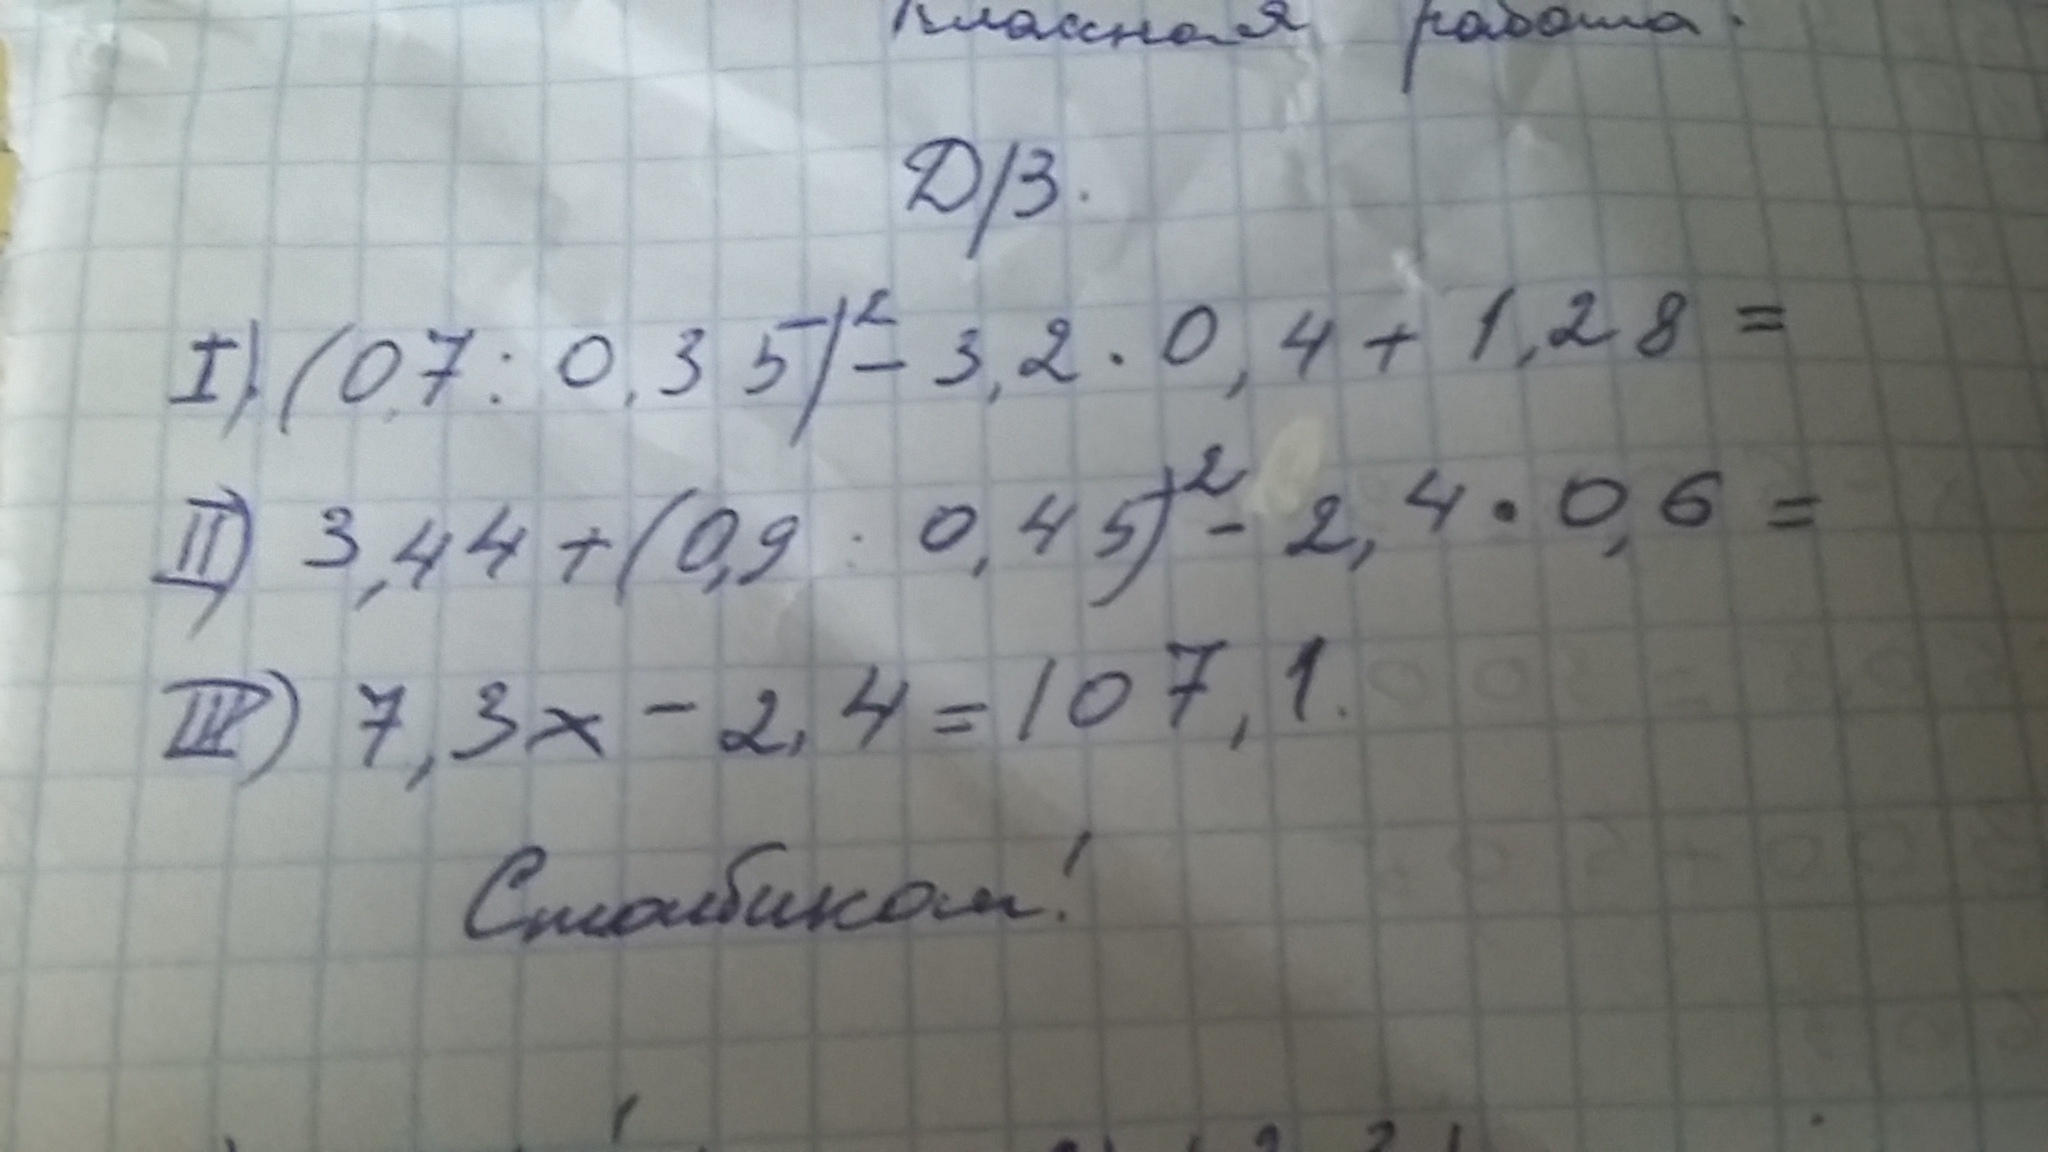 Классная работа.
Д/З.
I). (0,7 : 0,35)² - 3,2 · 0,4 + 1,28 =
II) 3,44 + (0,9 : 0,45)² - 2,4 · 0,6 =
III) 7,3x - 2,4 = 107,1.
Столбиком!